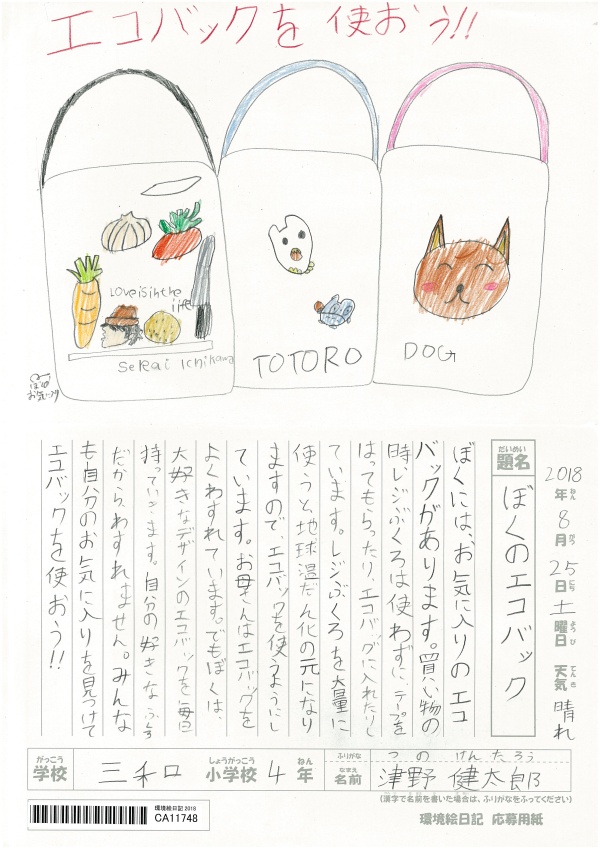 エコバックを使おう!!
Love is in the
life
Sekai Ichikawa
TOTORO
DOG
ぼくの
お気に入り
2018年8月25日土曜日 天気 晴れ
ねん がつ にち ようび てんき
だいめい
題名 ぼくのエコバック
ぼくには、お気に入りのエコ
バックがあります。買い物の
時レジぶくろは使わずに、テープを
はってもらったり、エコバッグに入れたりし
ています。レジぶくろを大量に
使うと、地球温だん化の元になり
ますので、エコバックを使うようにし
ています。お母さんはエコバックを
よくわすれています。でもぼくは、
大好きなデザインのエコバックを毎回
持っていきます。自分の好きな
だから、わすれません。みんな
も自分のお気に入りを見つけて
エコバックを使おう!!
がっこう しょうがっこう ねん
学校 三和 小学校 4年
ふりがな つの けんたろう
なまえ
名前 津野 健太郎
(漢字で名前を書いた場合は、ふりがなをふってください)
環境絵日記2018
CA11748
環境絵日記 応募用紙